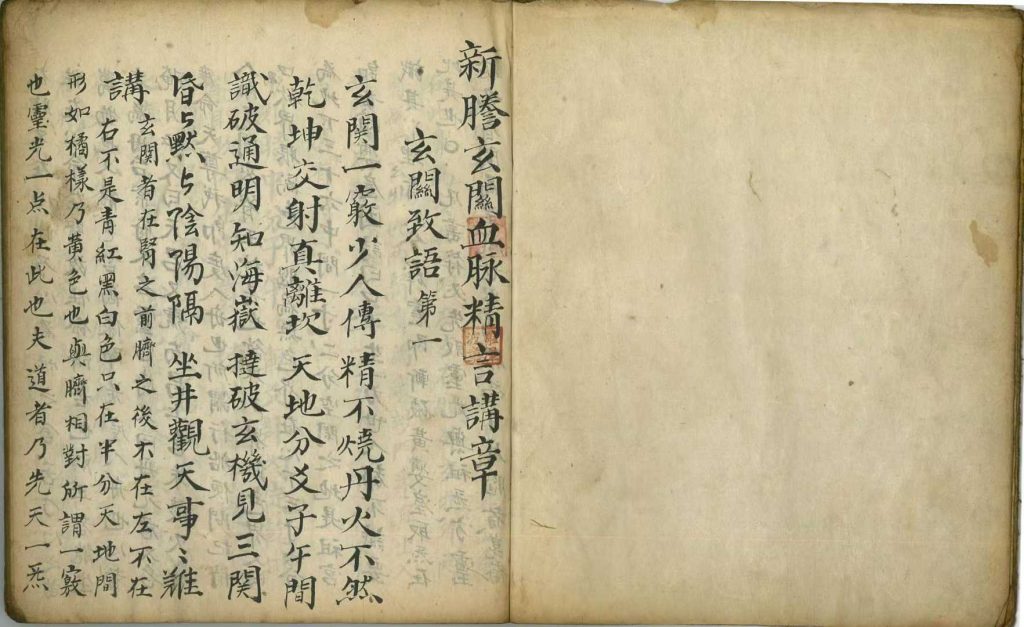 新謄玄關血脉精言講章
玄關致語第一
玄関一竅少人傳 精不燒丹火不然
乾坤交射真離坎 天地分爻子午間
識破通明知海嶽 撻破玄機見三関
昏〻默〻陰陽隔 坐井觀天事〻難
講 玄関者在腎之前臍之後不在左不在
右不是青紅黑白色只在半分天地間
形如橘樣乃黄色也與臍相對所謂一竅
也靈光一点在此也夫道者乃先天一炁